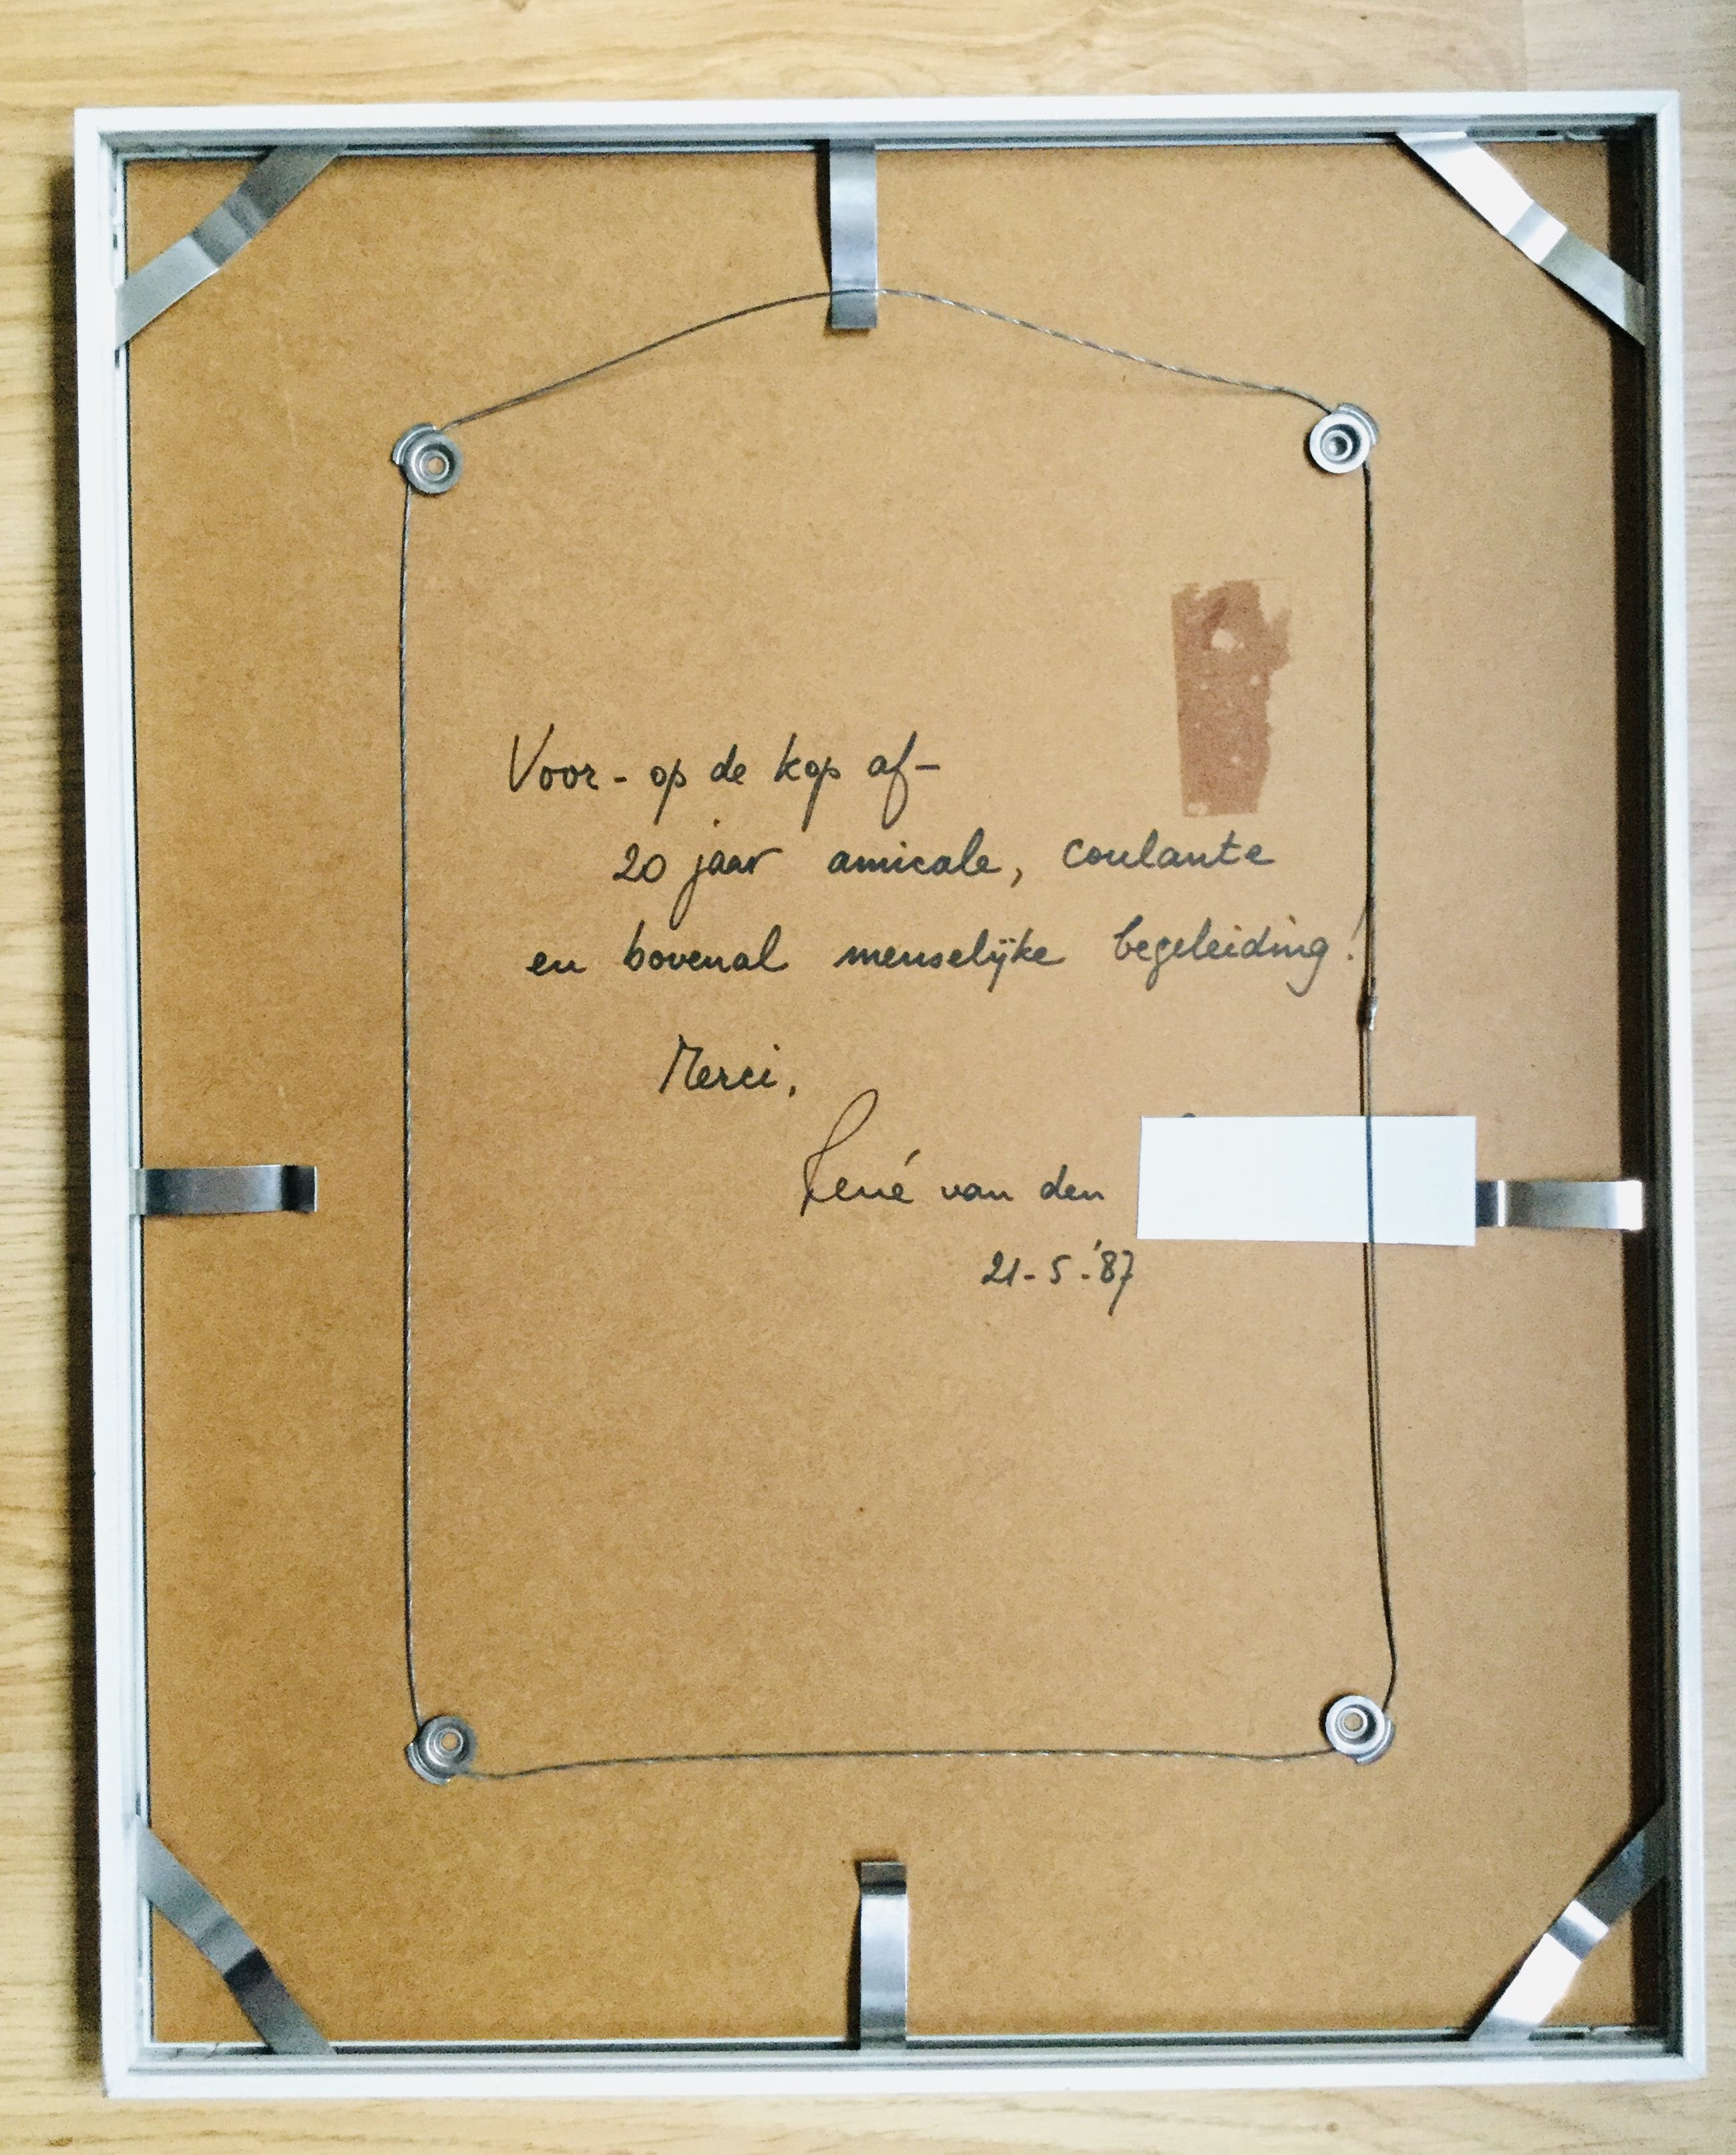 Voor - op de kop af -
20 jaar amicale, coulante
en bovenal menselijke begeleiding!
Merci,
René van den
21-5-'87